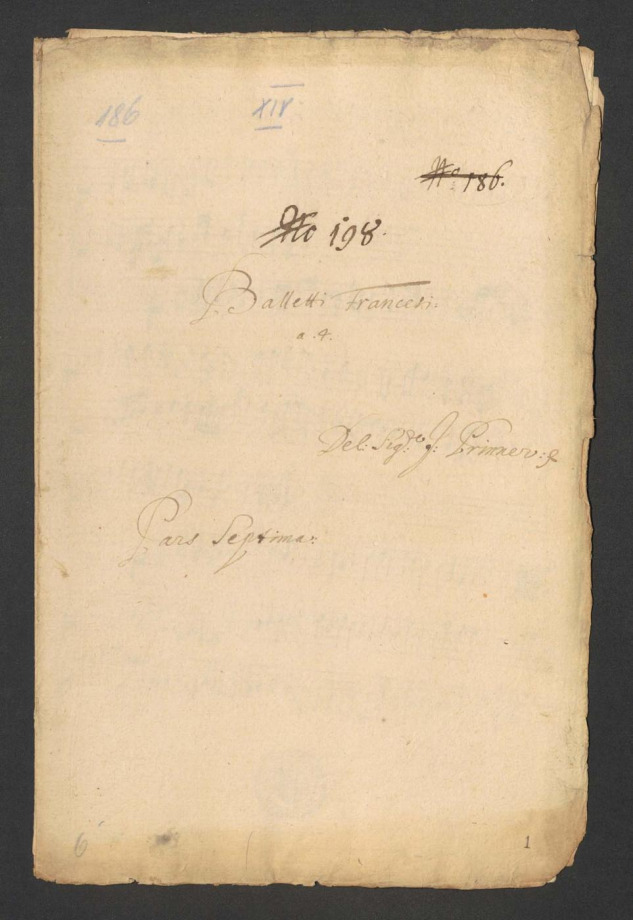 186
XIV
No 186.
No 198.
Balletti Francesi:
a .4.
Del: Sigre J: Primaer:
Pars Septima:
6
1